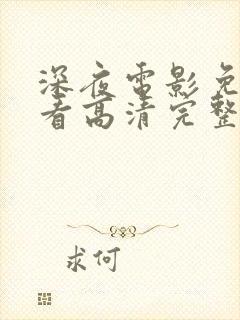 深夜电影免
看高清完整
求何